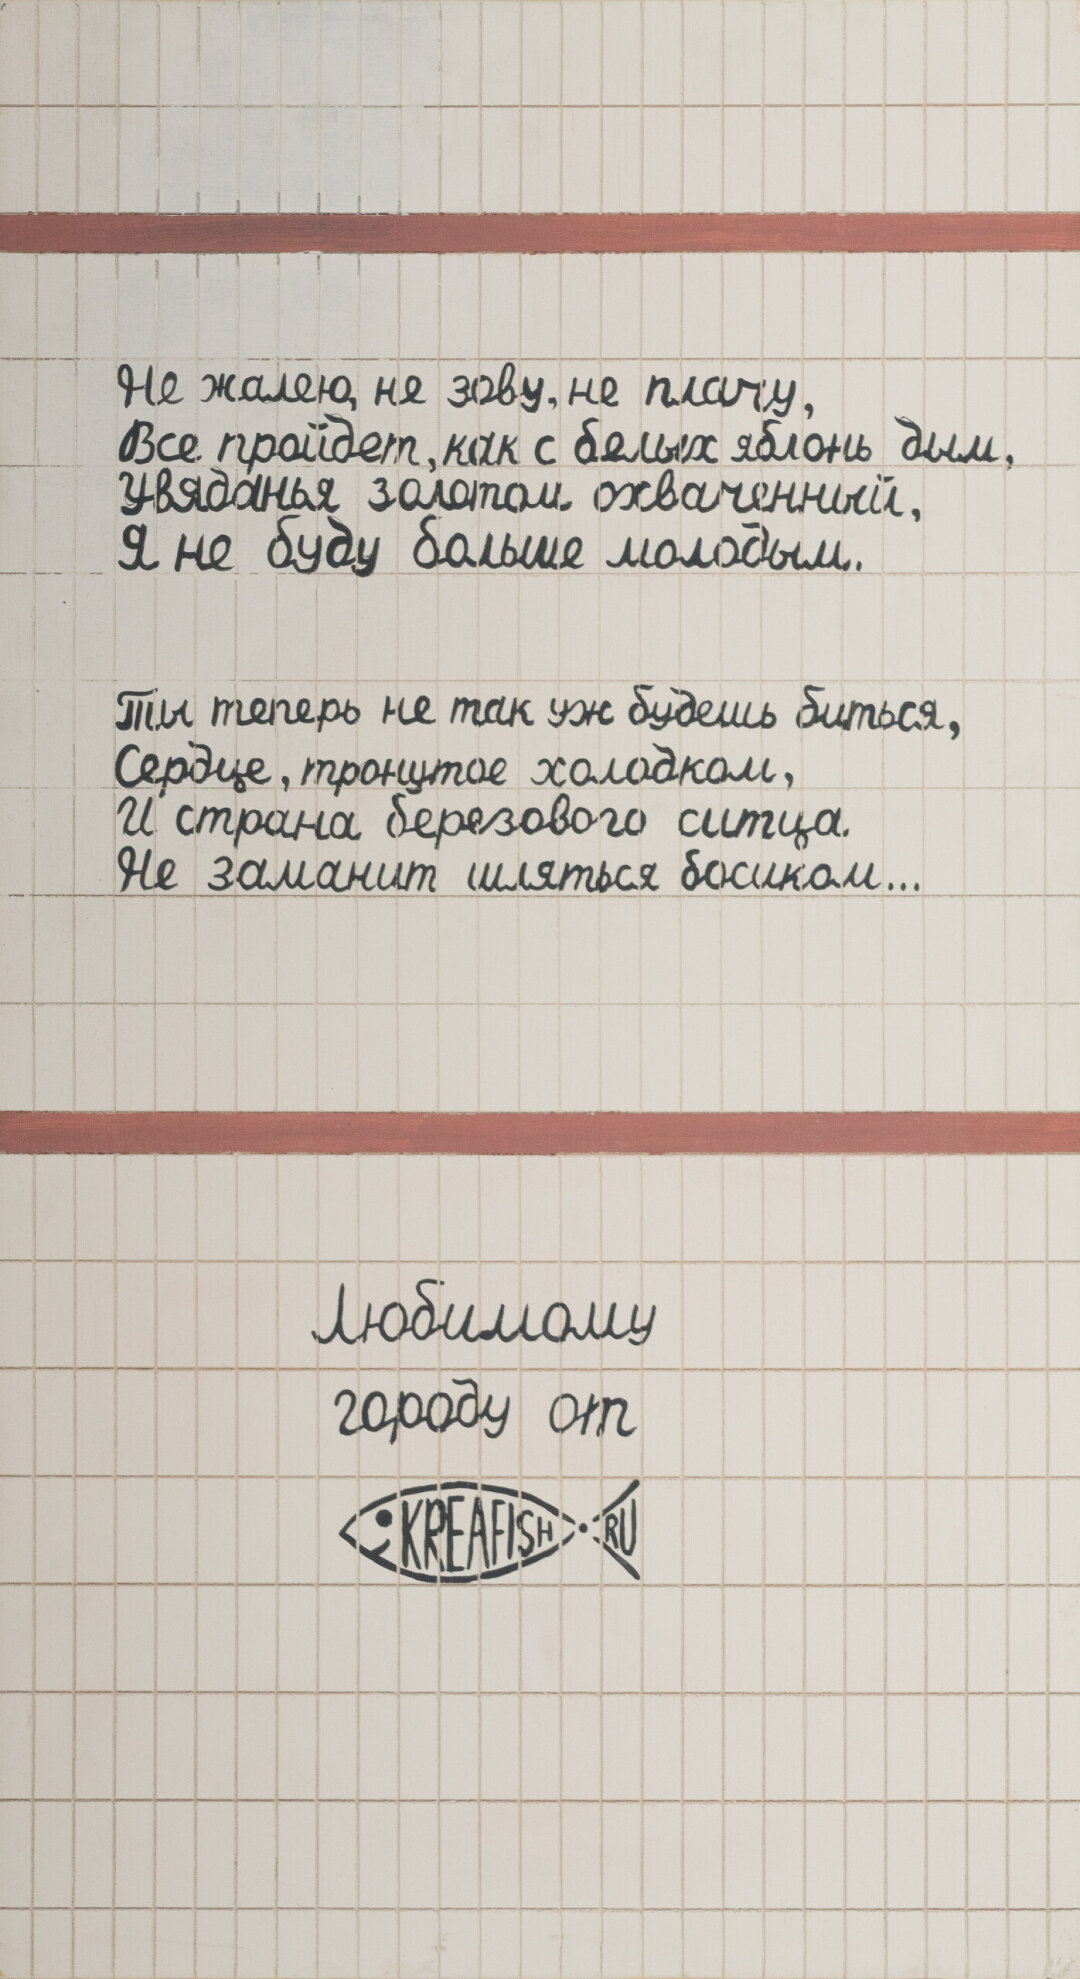 Не жалею, не зову, не плачу,
Все пройдет, как с белых яблонь дым,
Увяданья золотом охваченный,
Я не буду больше молодым.
Ты теперь не так уж будешь биться,
Сердце, тронутое холодком,
И страна березового ситца.
Не заманит шляться босиком...
Любимому
городу от
KREAFISH.RU